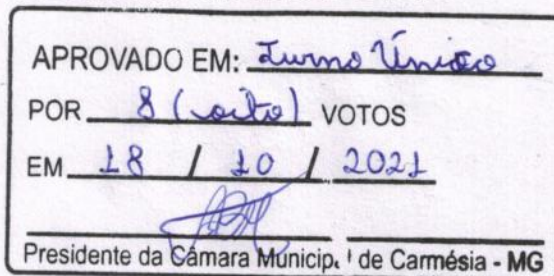 APROVADO EM: Turno Único
POR 8 (oito) VOTOS
EM 18 / 10 / 2021
Presidente da Câmara Municip. l de Carmésia - MG